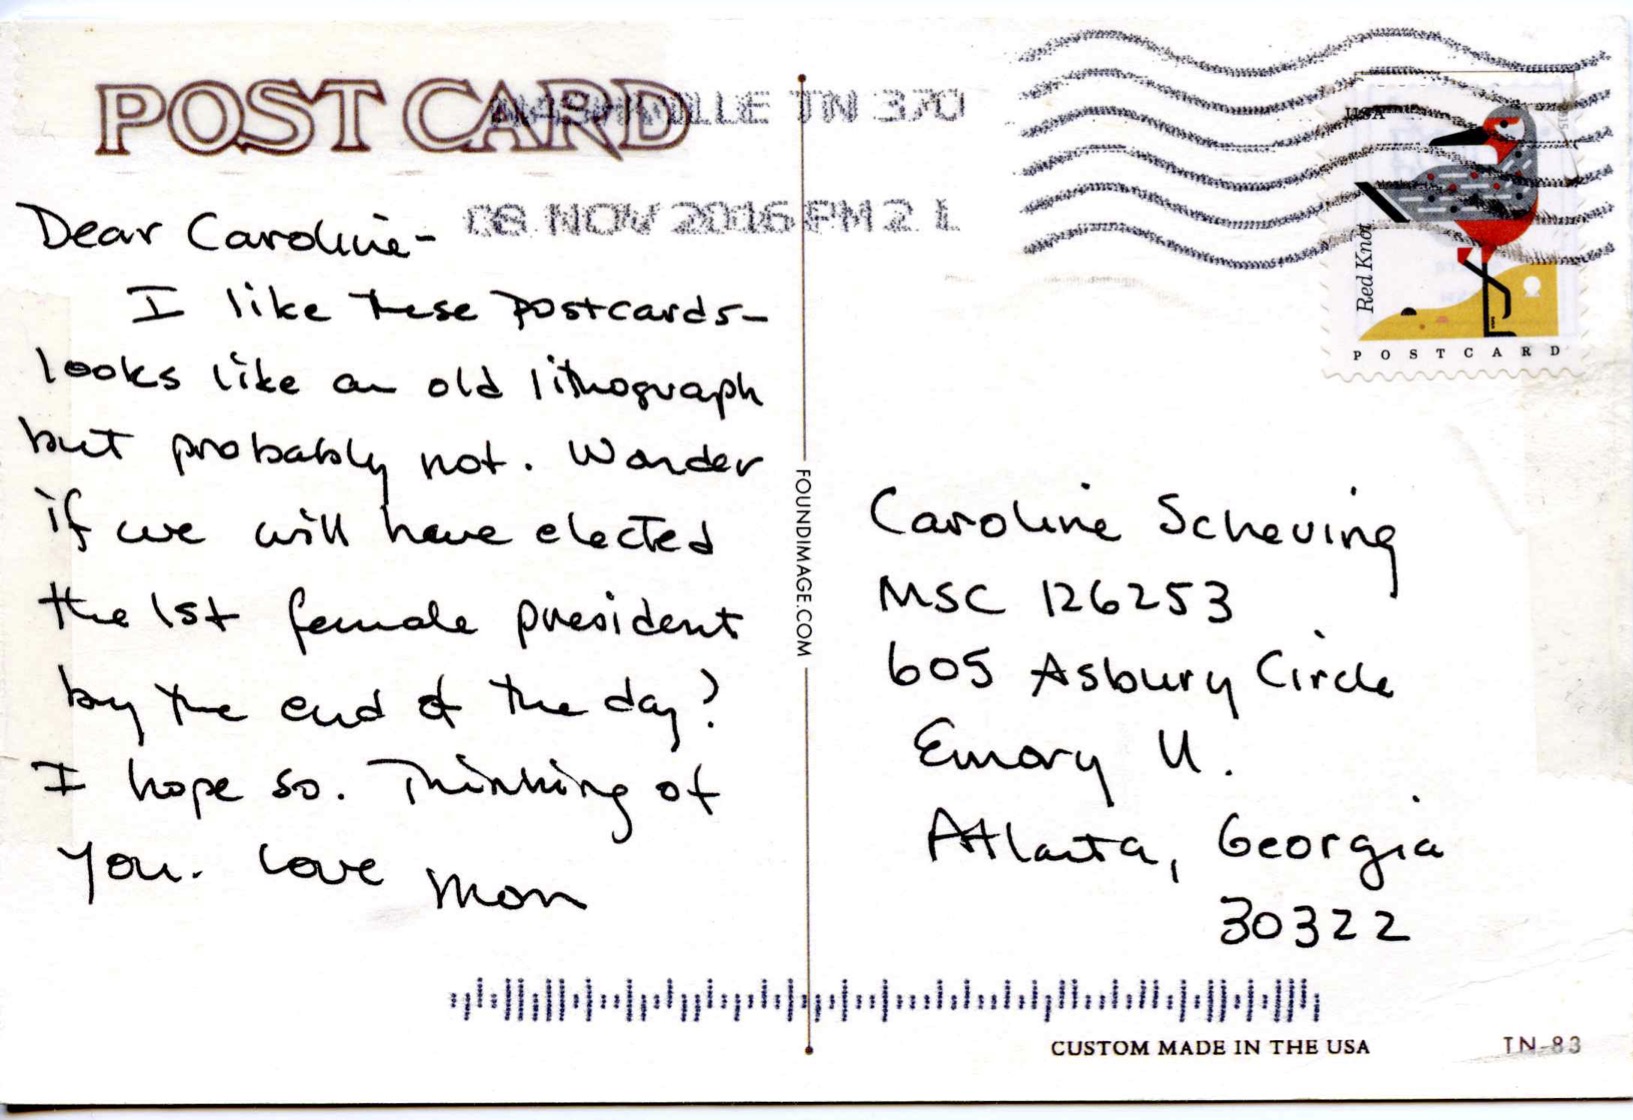 POST CARD
NASHVILLE TN 370
08 NOV 2016 PM 2 L
USA
2015
Red Knot
POSTCARD
Dear Caroline-
I like these postcards-
looks like an old lithograph
but probably not. Wonder
if we will have elected
the 1st female president
by the end of the day?
I hope so. Thinking of
you. Love Mom
FOUNDIMAGE.COM
Caroline Scheving
MSC 126253
605 Asbury Circle
Emory U.
Atlanta, Georgia
30322
CUSTOM MADE IN THE USA
TN-83